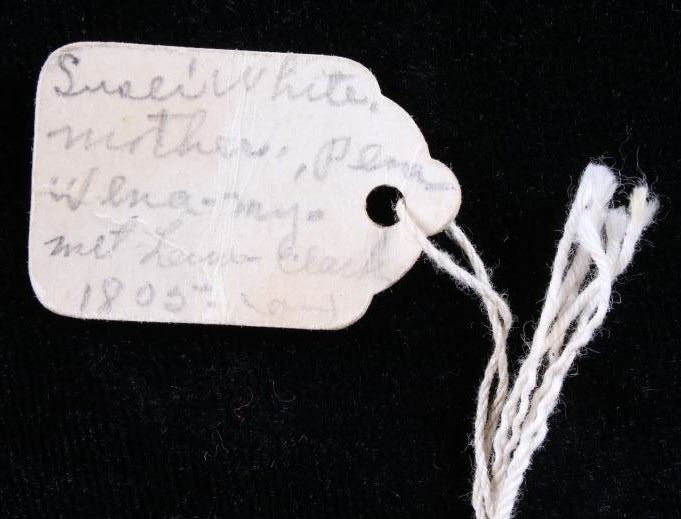 Susei White,
mother, Pena
Wena-my.
met Lewis Clark
1805